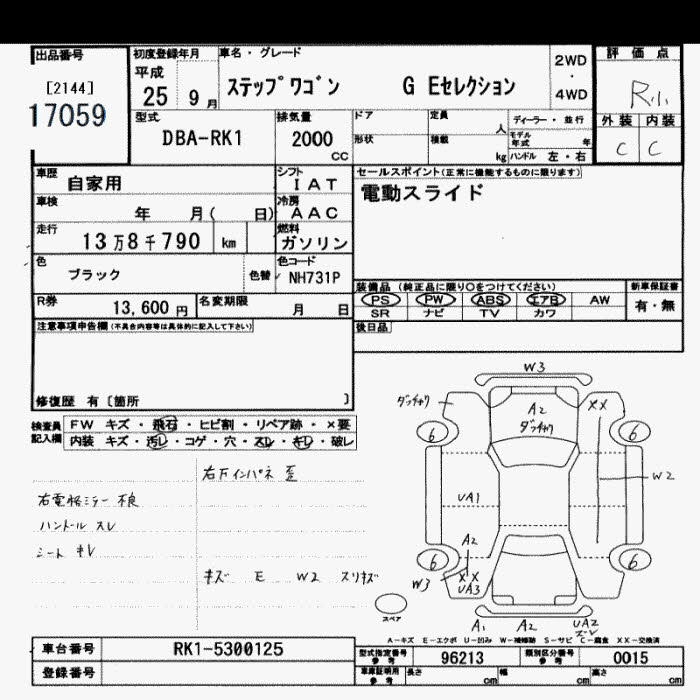 出品番号
[2144]
17059
初度登録年月
平成
25 9 月
車名・グレード
ステップワゴン G Eセレクション
2WD
・
4WD
評価点
R小
外装 内装
C C
型式
DBA-RK1
排気量
2000
CC
ドア
定員
人
ディーラー・並行
形状
積載
kg
モデル年式 年
ハンドル 左・右
車歴
自家用
シフト
IAT
車検
年 月( 日)
冷房
AAC
走行
13万8千790 km
燃料
ガソリン
色
ブラック
色替
色コード
NH731P
R券
13,600 円
名変期限
月 日
セールスポイント(正常に機能するものに限ります)
電動スライド
装備品 (純正品に限り○をつけてください)
新車保証書
PS PW ABS エアB AW
有・無
SR ナビ TV カワ
後日品
注意事項申告欄(不具合内容等は具体的に記入して下さい)
修復歴 有〔箇所 〕
検査員
記入欄
FW キズ・飛石・ヒビ割・リペア跡・×要
内装 キズ・汚レ・コゲ・穴・スレ・キレ・破レ
右下インパネ 歪
右電格ミラー 不良
ハンドル スレ
シート キレ
キズ E W2 スリキズ
W3
ダッチャク
A2
ダッチャク
XX
6
6
W2
UA1
A2
6
6
W3
XX
UA3
スペア
A1
A2
UA2
ズレ
A-キズ E-エクボ U-凹み W-補修跡 S-サビ C-腐食 XX-交換済
車台番号
RK1-5300125
登録番号
型式指定番号
参考
96213
類別区分番号
参考
0015
車庫証明用
参考
長さ
cm
幅
cm
高さ
cm